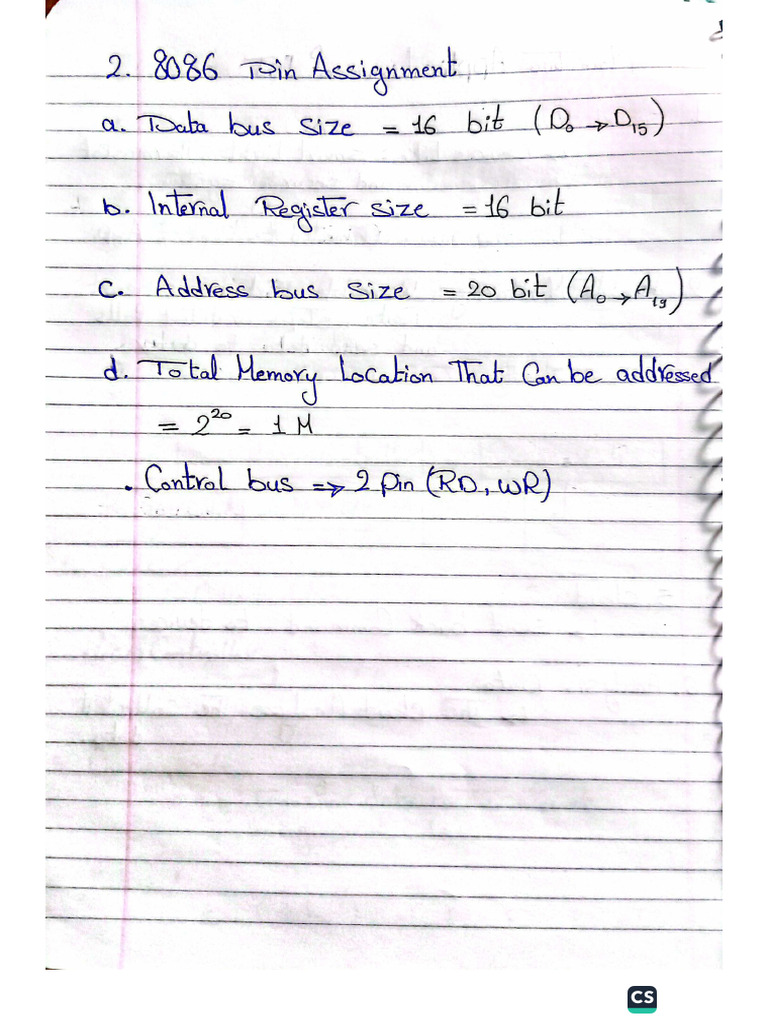 2. 8086 Pin Assignment
a. Data bus size = 16 bit (D₀ → D₁₅)
b. Internal Register size = 16 bit
c. Address bus size = 20 bit (A₀ → A₁₉)
d. Total Memory Location That Can be addressed
= 2²⁰ = 1 M
. Control bus ⇒ 2 Pin (RD, WR)
CS